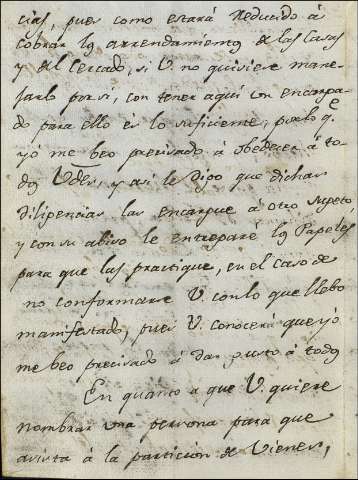 cias, pues como estará reducido á
cobrar los arrendamientos de las Casas
y del Cercado, si V. no quisiere mane-
jarlo por si, con tener aqui un encarga-
do para ello és lo suficiente, por lo qe
yó me beo precisado á obedecer á to-
dos Vdes, y asi le digo que dichas
diligencias las encargue á otro sugeto
y con su abiso le entregaré los Papeles
para que las practique, en el caso de
no conformarse V. con lo que llebo
manifestado, pues V. conocerá que yó
me beo precisado á dar gusto á todos
En quanto a que V. quiere
nombrar una persona para que
asista á la particion de Vienes,